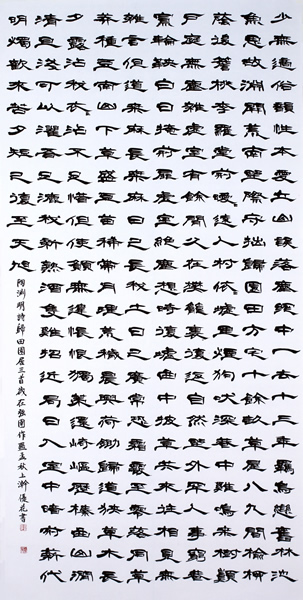 少無適俗韻性本愛丘山誤落塵網中一去三十年羈鳥戀舊林池
魚思故淵開荒南野際守拙歸園田方宅十餘畝草屋八九間榆柳
蔭後簷桃李羅堂前曖曖遠人村依依墟里煙狗吠深巷中雞鳴桑樹顛
戶庭無塵雜虛室有餘閒久在樊籠裏復得返自然野外罕人事窮巷
寡輪鞅白日掩荊扉虛室絕塵想時復墟曲中披草共來往相見無
雜言但道桑麻長桑麻日已長我土日已廣常恐霜霰至零落同草
莽種豆南山下草盛豆苗稀晨興理荒穢帶月荷鋤歸道狹草木長
夕露沾我衣衣沾不足惜但使願無違悵恨獨策還崎嶇歷榛曲山澗
清且淺可以濯吾足漉我新熟酒隻雞招近局日入室中暗荊薪代
明燭歡來苦夕短已復至天旭
陶淵明詩歸田園居三首歲在強圉作噩孟秋上澣優花書